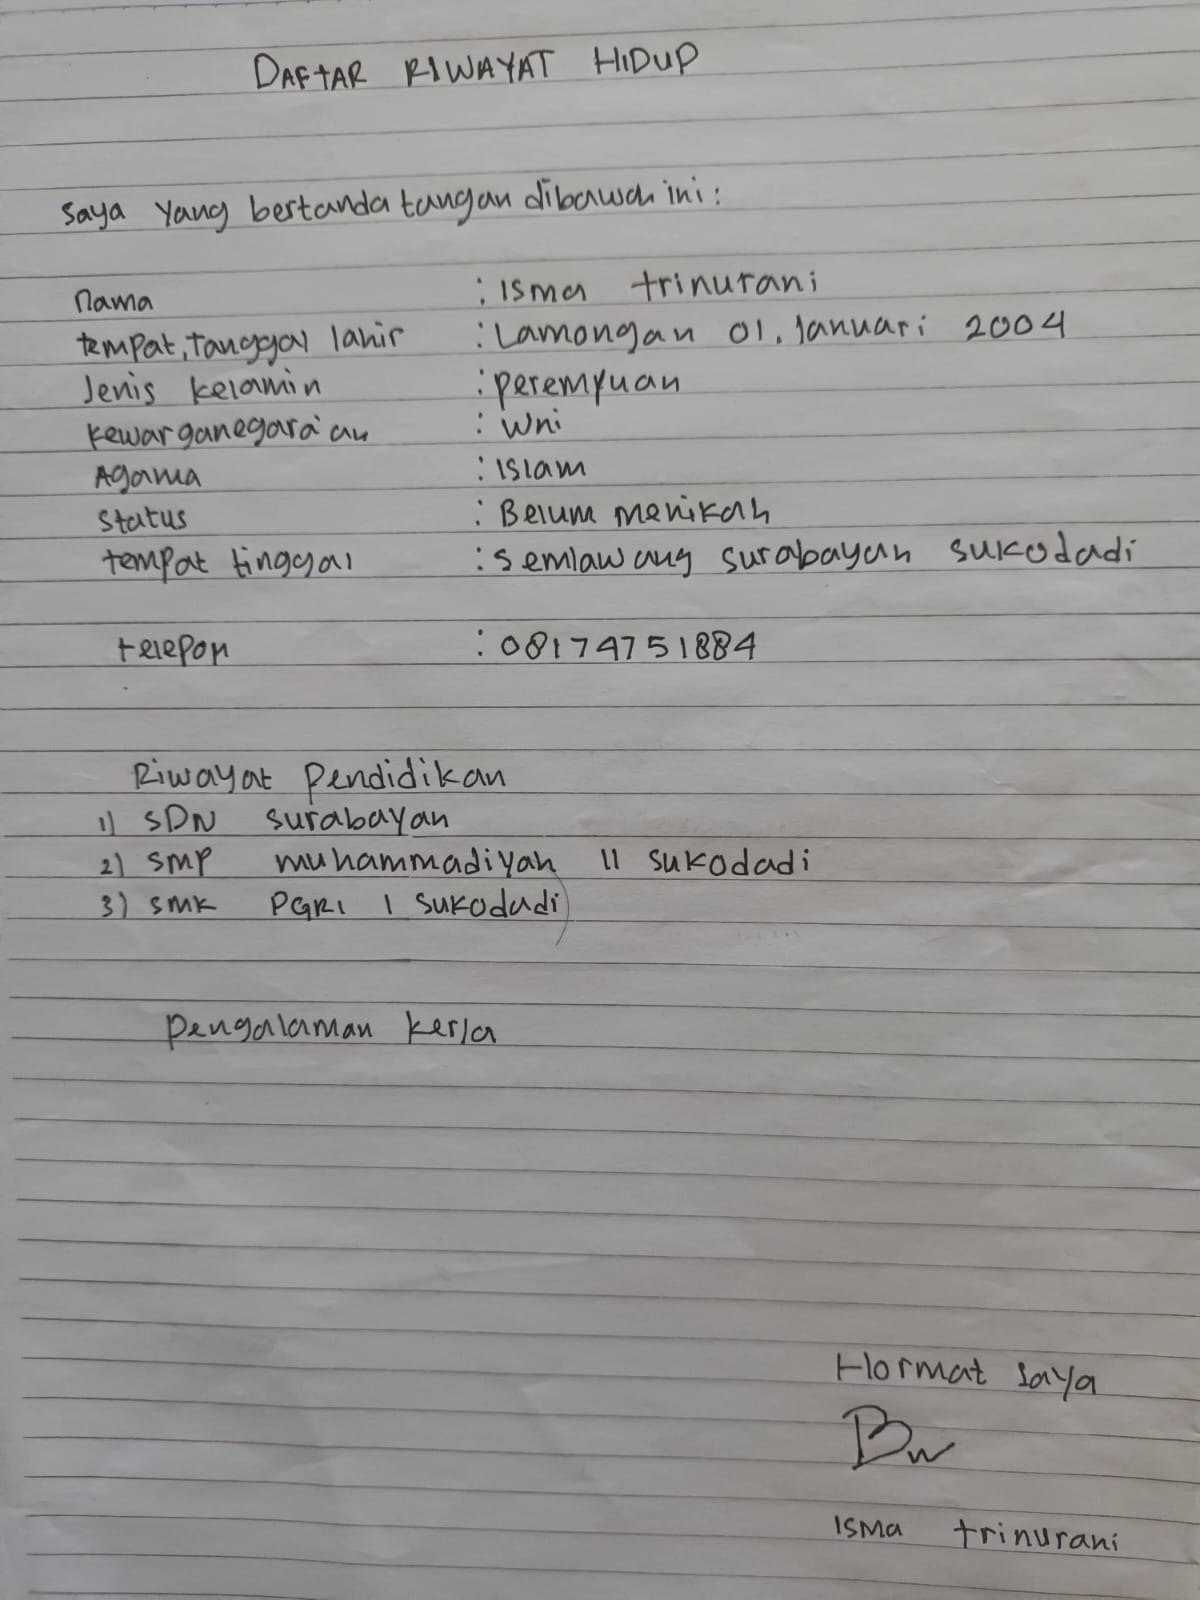 DAFTAR RIWAYAT HIDUP
Saya yang bertanda tangan dibawah ini :
nama : Isma trinurani
tempat, tanggal lahir : Lamongan 01. Januari 2004
Jenis kelamin : peremyuan
kewarganegara'an : Wni
Agama : Islam
Status : Belum menikah
tempat tinggal : semlawang surabayan sukodadi
telepon : 08174751884
Riwayat Pendidikan
1) SDN surabayan
2) SMP muhammadiyah 11 sukodadi
3) SMK PGRI 1 sukodadi
pengalaman kerja
Hormat saya
Isma trinurani